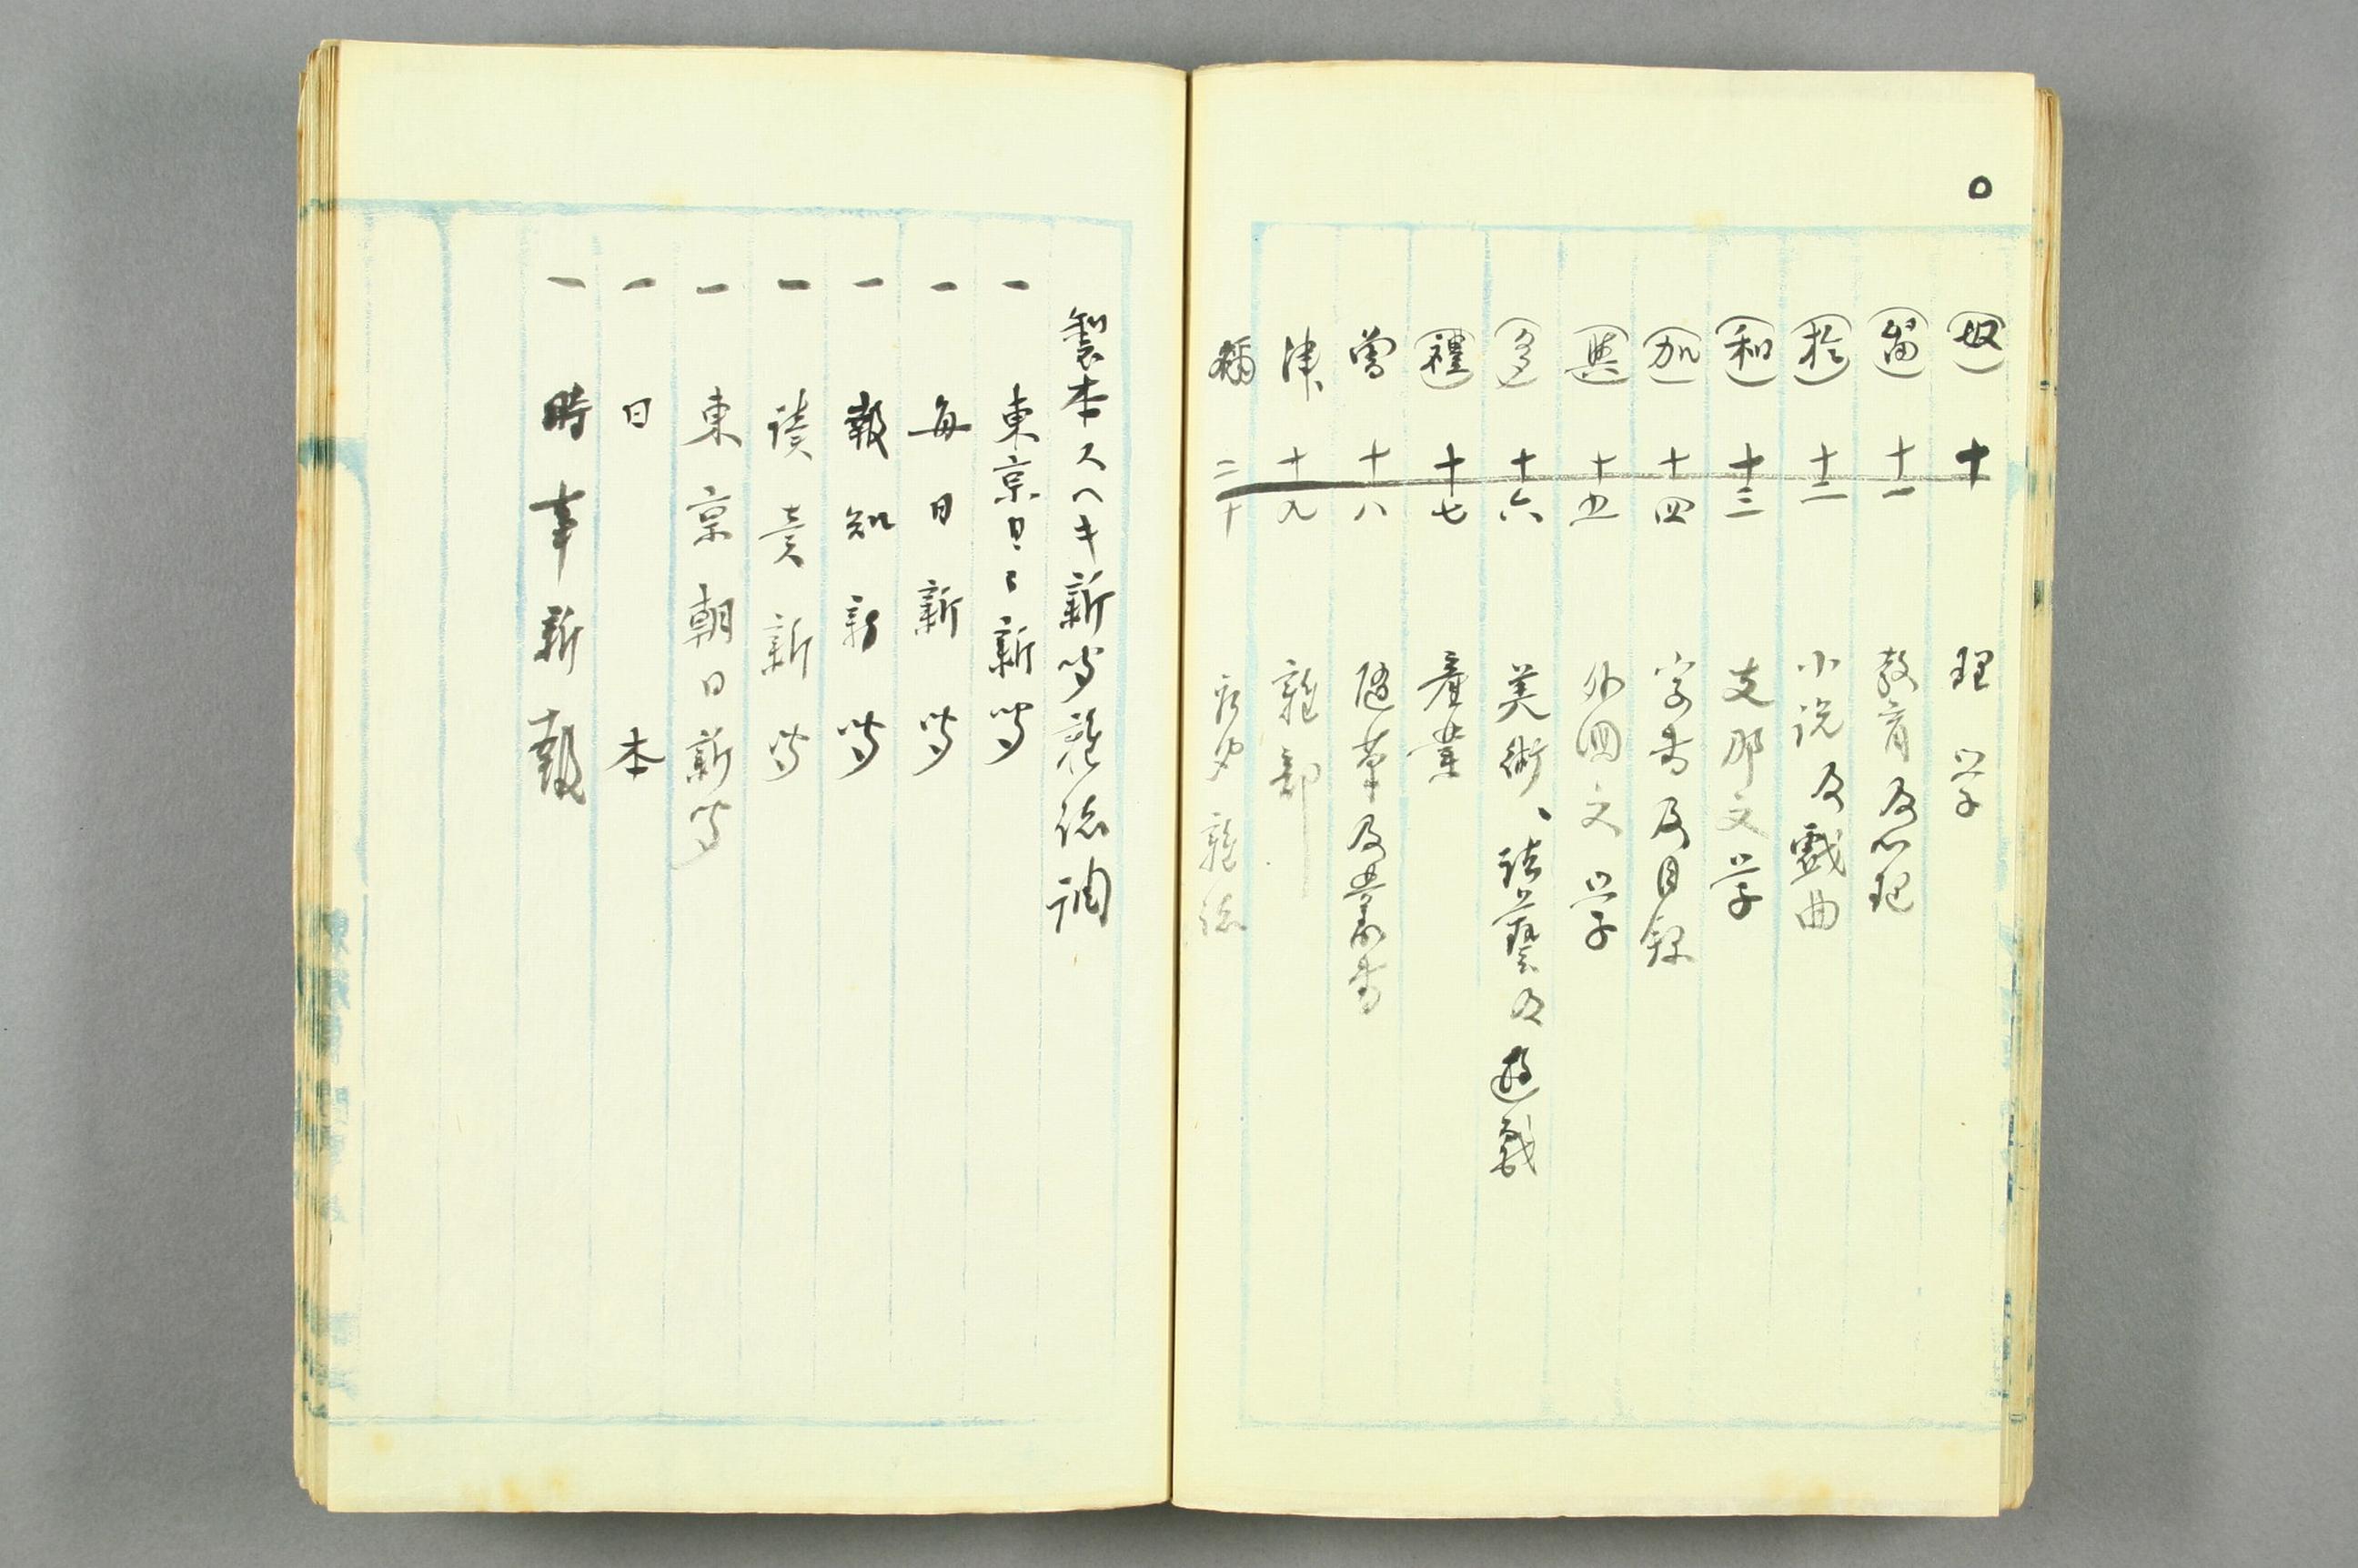 ○
(奴) 十 理学
(留) 十一 教育及心理
(於) 十二 小説及戯曲
(和) 十三 支那文学
(加) 十四 字書及目録
(與) 十五 外国文学
(多) 十六 美術、諸藝及遊戯
(禮) 十七 産業
曽 十八 随筆及叢書
津 十九 雑部
禰 二十 官報 雑誌
製本スヘキ新聞雑誌調
一 東京日々新聞
一 毎日新聞
一 報知新聞
一 読売新聞
一 東京朝日新聞
一 日本
一 時事新報